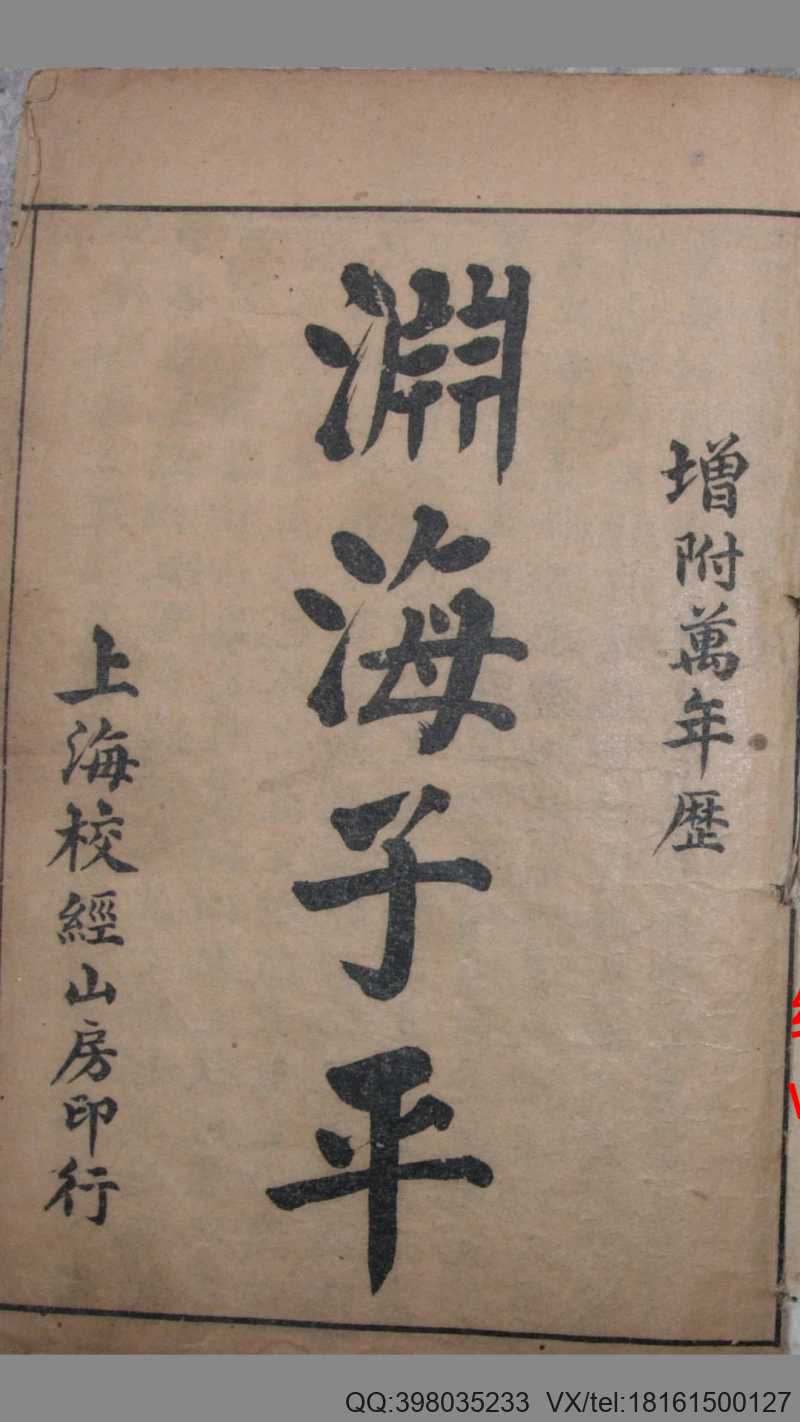 增附萬年歷
淵海子平
上海校經山房印行
QQ:398035233 VX/tel:18161500127